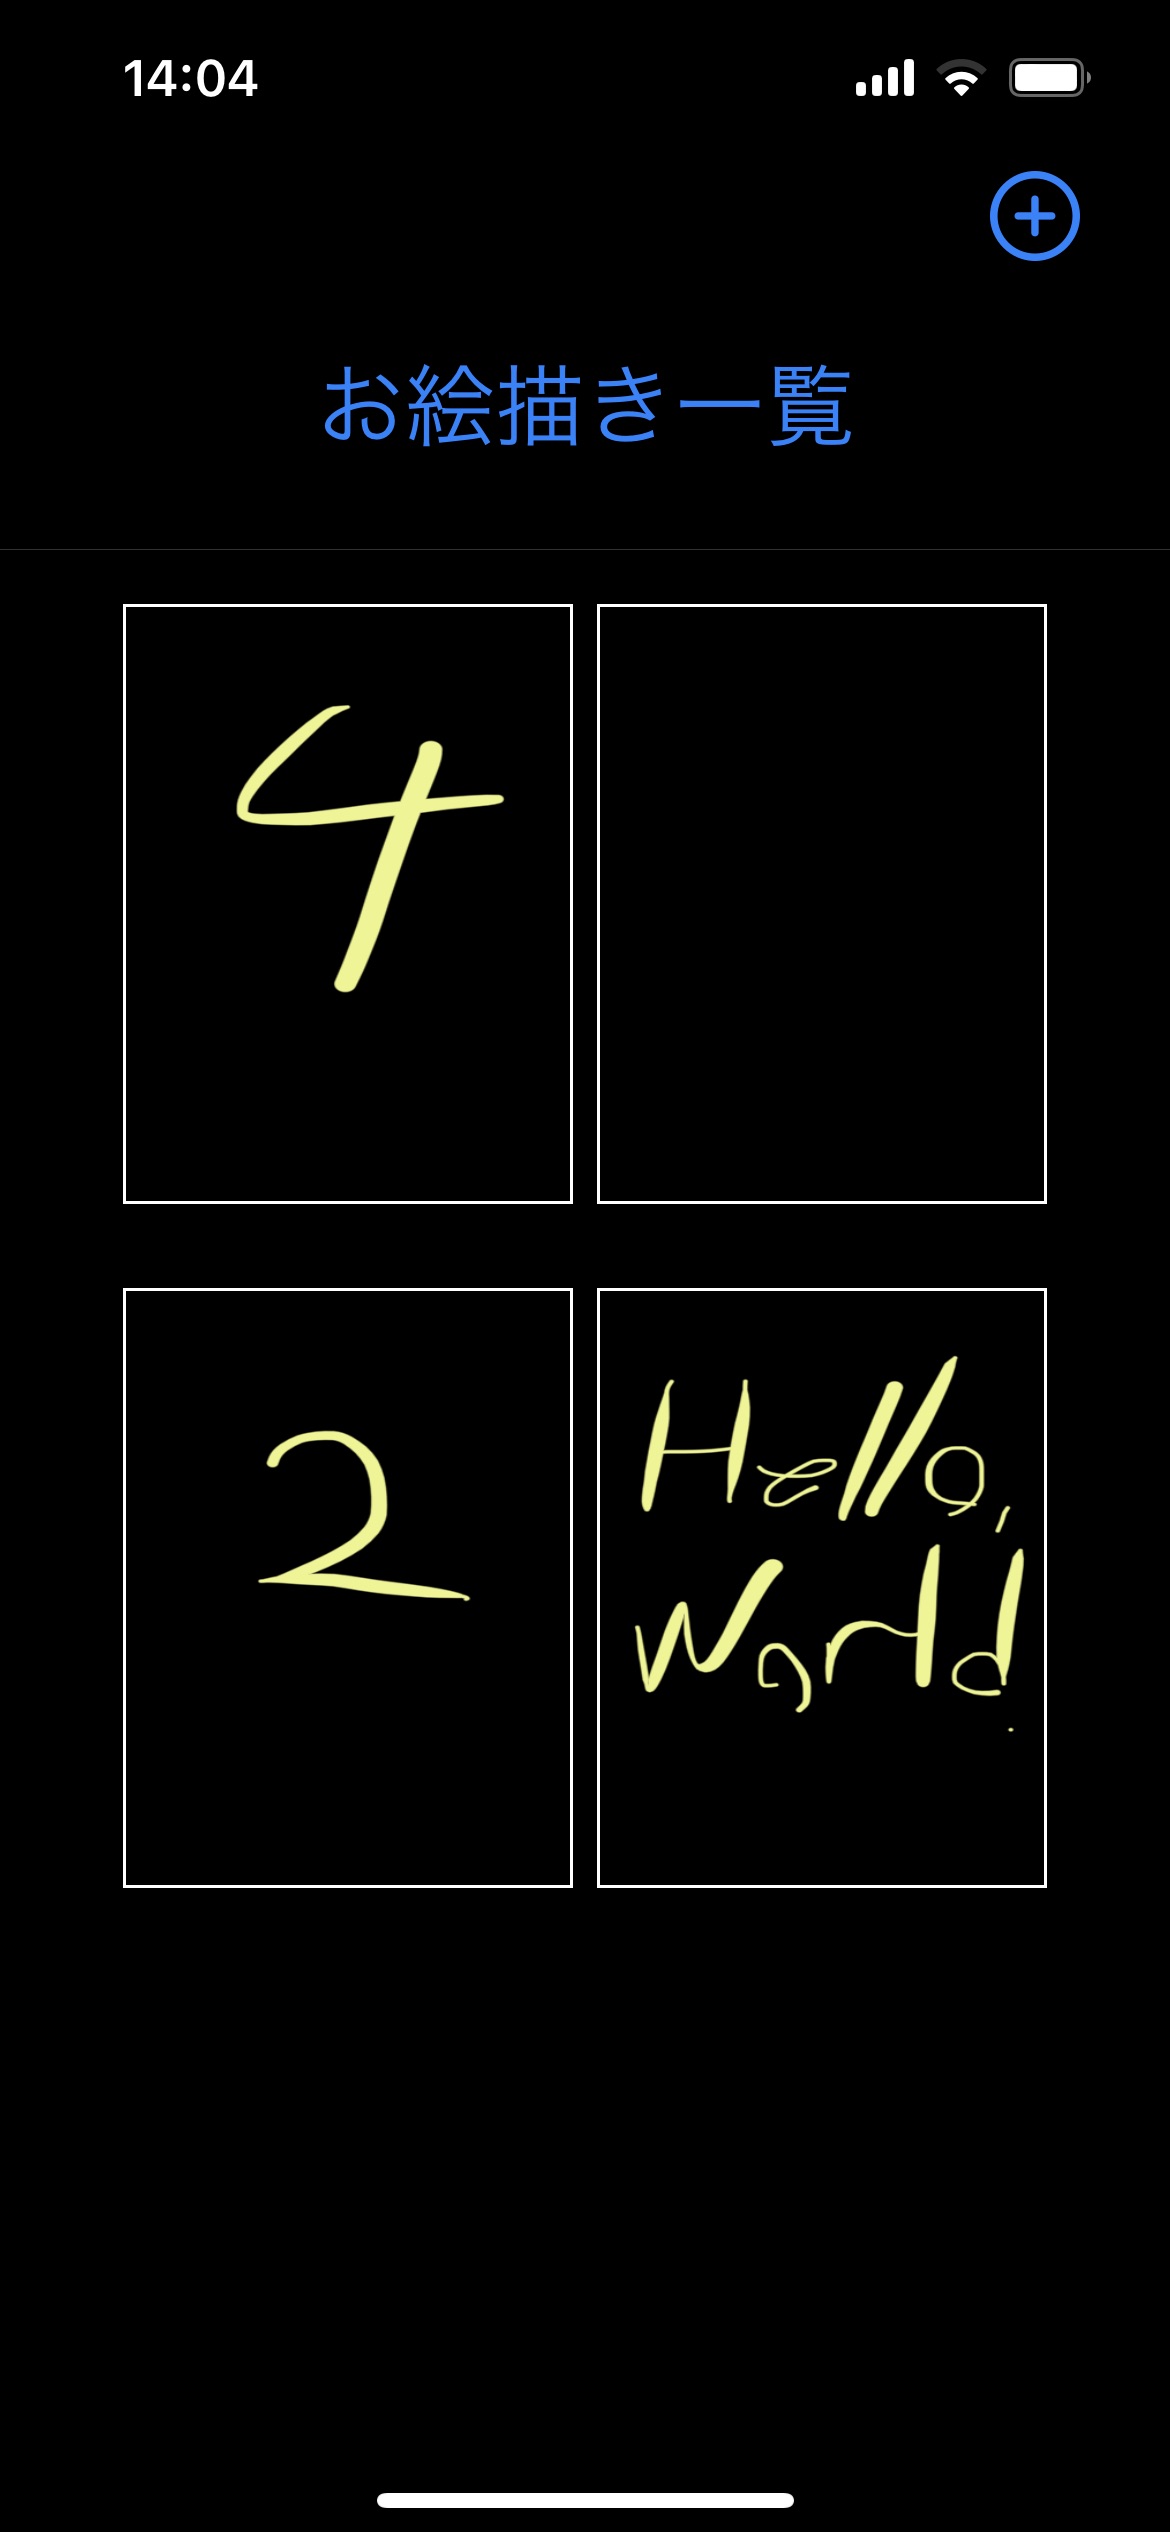 14:04
お絵描き一覧
4
2
Hello,
World.